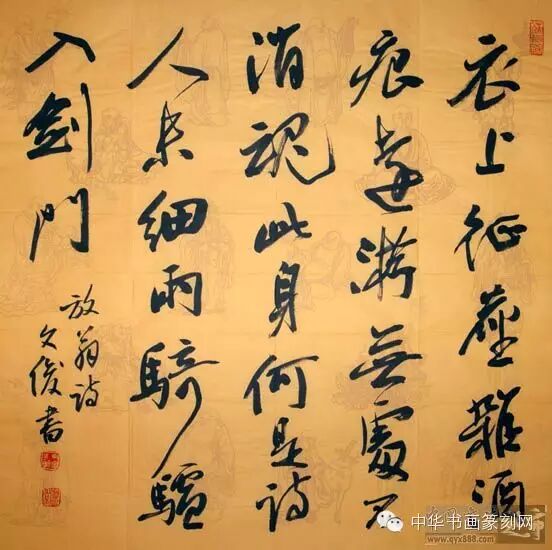 衣上征塵雜酒
痕遠游無處不
消魂此身何是诗
人未細雨騎驢
入劍門
放翁诗
文俊書
中华书画篆刻网
www.qyx888.com